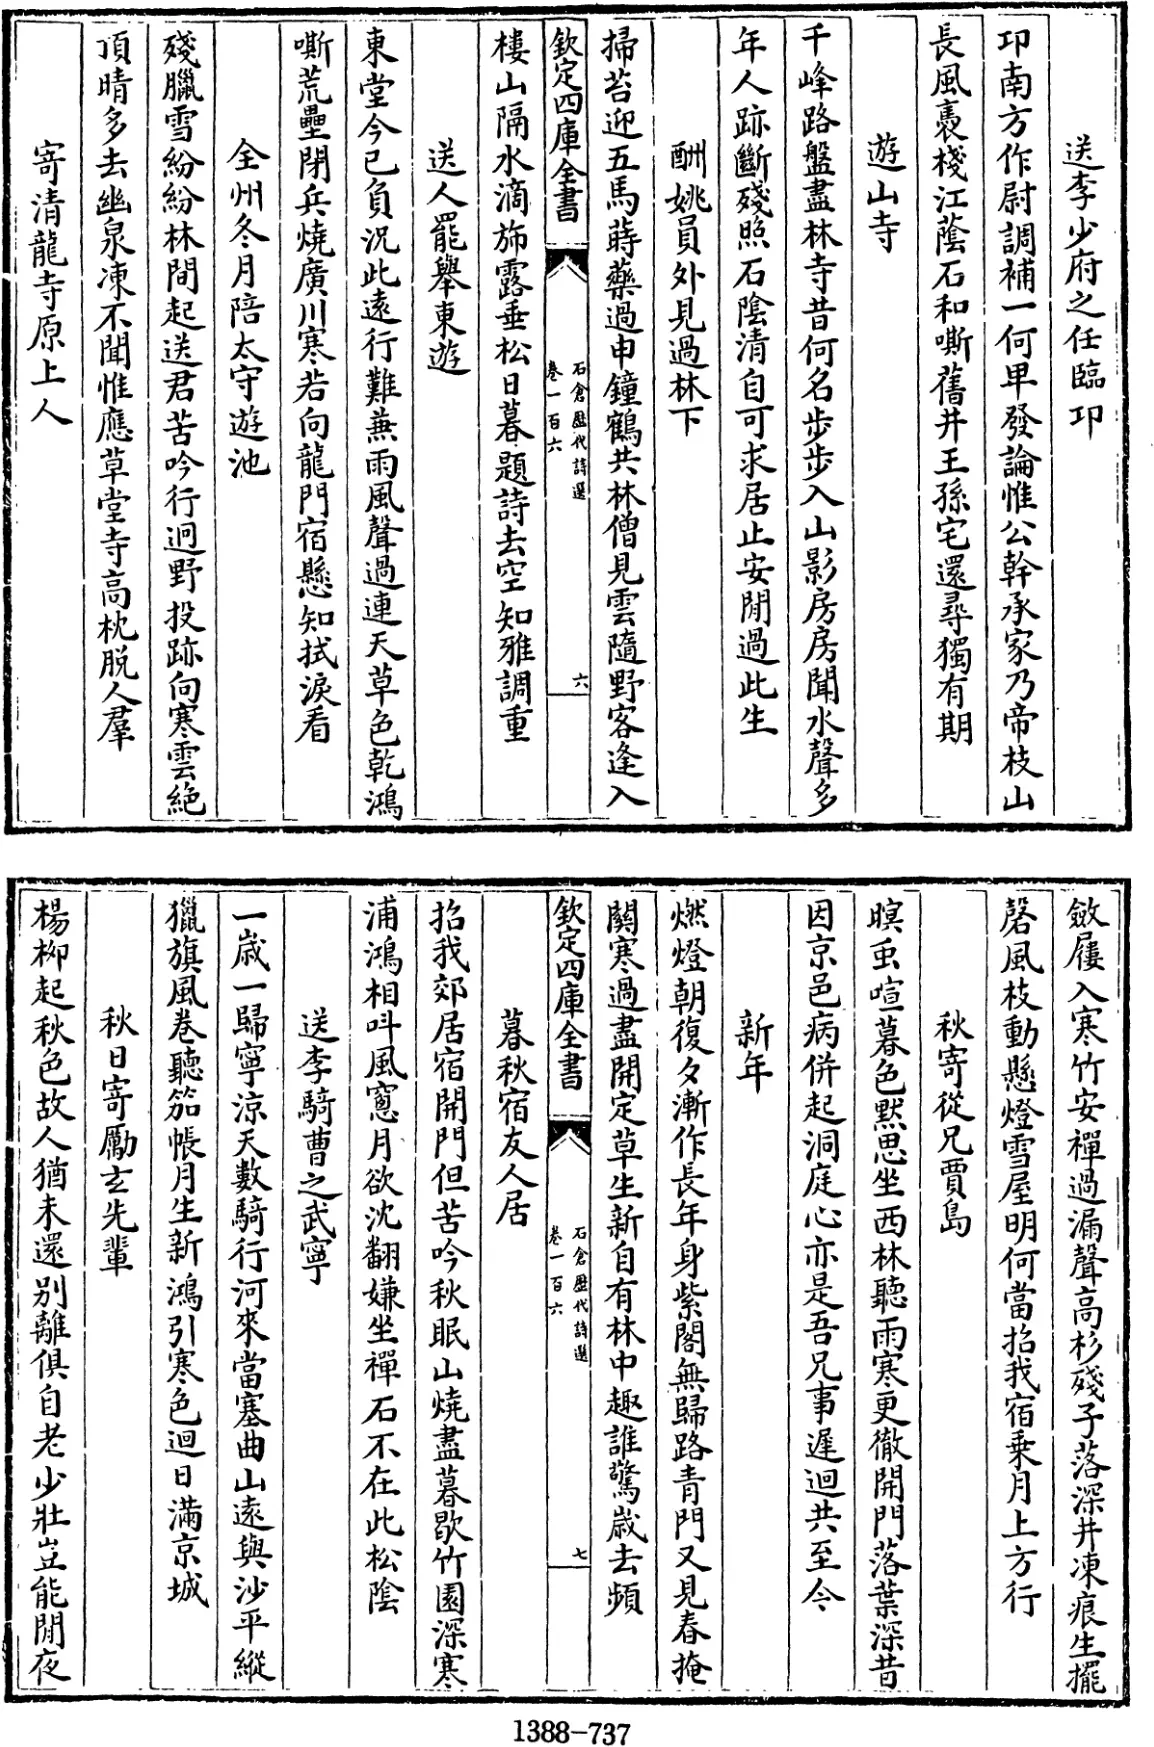 送李少府之任臨邛
邛南方作尉調補一何早發論惟公幹承家乃帝枝山
長風裊棧江蔭石和嘶舊井王孫宅還尋獨有期
遊山寺
千峰路盤盡林寺昔何名步步入山影房房聞水聲多
年人跡斷殘照石陰清自可求居止安閒過此生
酬姚員外見過林下
掃苔迎五馬蒔藥過申鐘鶴共林僧見雲隨野客逢入
欽定四庫全書
石倉歷代詩選
卷一百六
六
樓山隔水滴斾露垂松日暮題詩去空知雅調重
送人罷舉東遊
東堂今已負況此遠行難兼雨風聲過連天草色乾鴻
嘶荒壘閉兵燒廣川寒若向龍門宿懸知拭淚看
全州冬月陪太守遊池
殘臘雪紛紛林間起送君苦吟行迥野投跡向寒雲絶
頂晴多去幽泉凍不聞惟應草堂寺高枕脫人羣
寄清龍寺原上人
斂屨入寒竹安禪過漏聲高杉殘子落深井凍痕生擺
磬風枝動懸燈雪屋明何當招我宿乗月上方行
秋寄從兄賈島
暝䖝喧暮色默思坐西林聽雨寒更徹開門落葉深昔
因京邑病併起洞庭心亦是吾兄事遲迴共至今
新年
燃燈朝復夕漸作長年身紫閣無歸路青門又見春掩
關寒過盡開定草生新自有林中趣誰驚歲去頻
欽定四庫全書
石倉歷代詩選
卷一百六
七
暮秋宿友人居
招我郊居宿開門但苦吟秋眠山燒盡暮歇竹園深寒
浦鴻相呌風窻月欲沈翻嫌坐禪石不在此松陰
送李騎曹之武寧
一歲一歸寧涼天數騎行河來當塞曲山遠與沙平縱
獵旗風卷聽笳帳月生新鴻引寒色迴日滿京城
秋日寄勵玄先輩
楊柳起秋色故人猶未還別離俱自老少壯豈能閒夜
1388-737